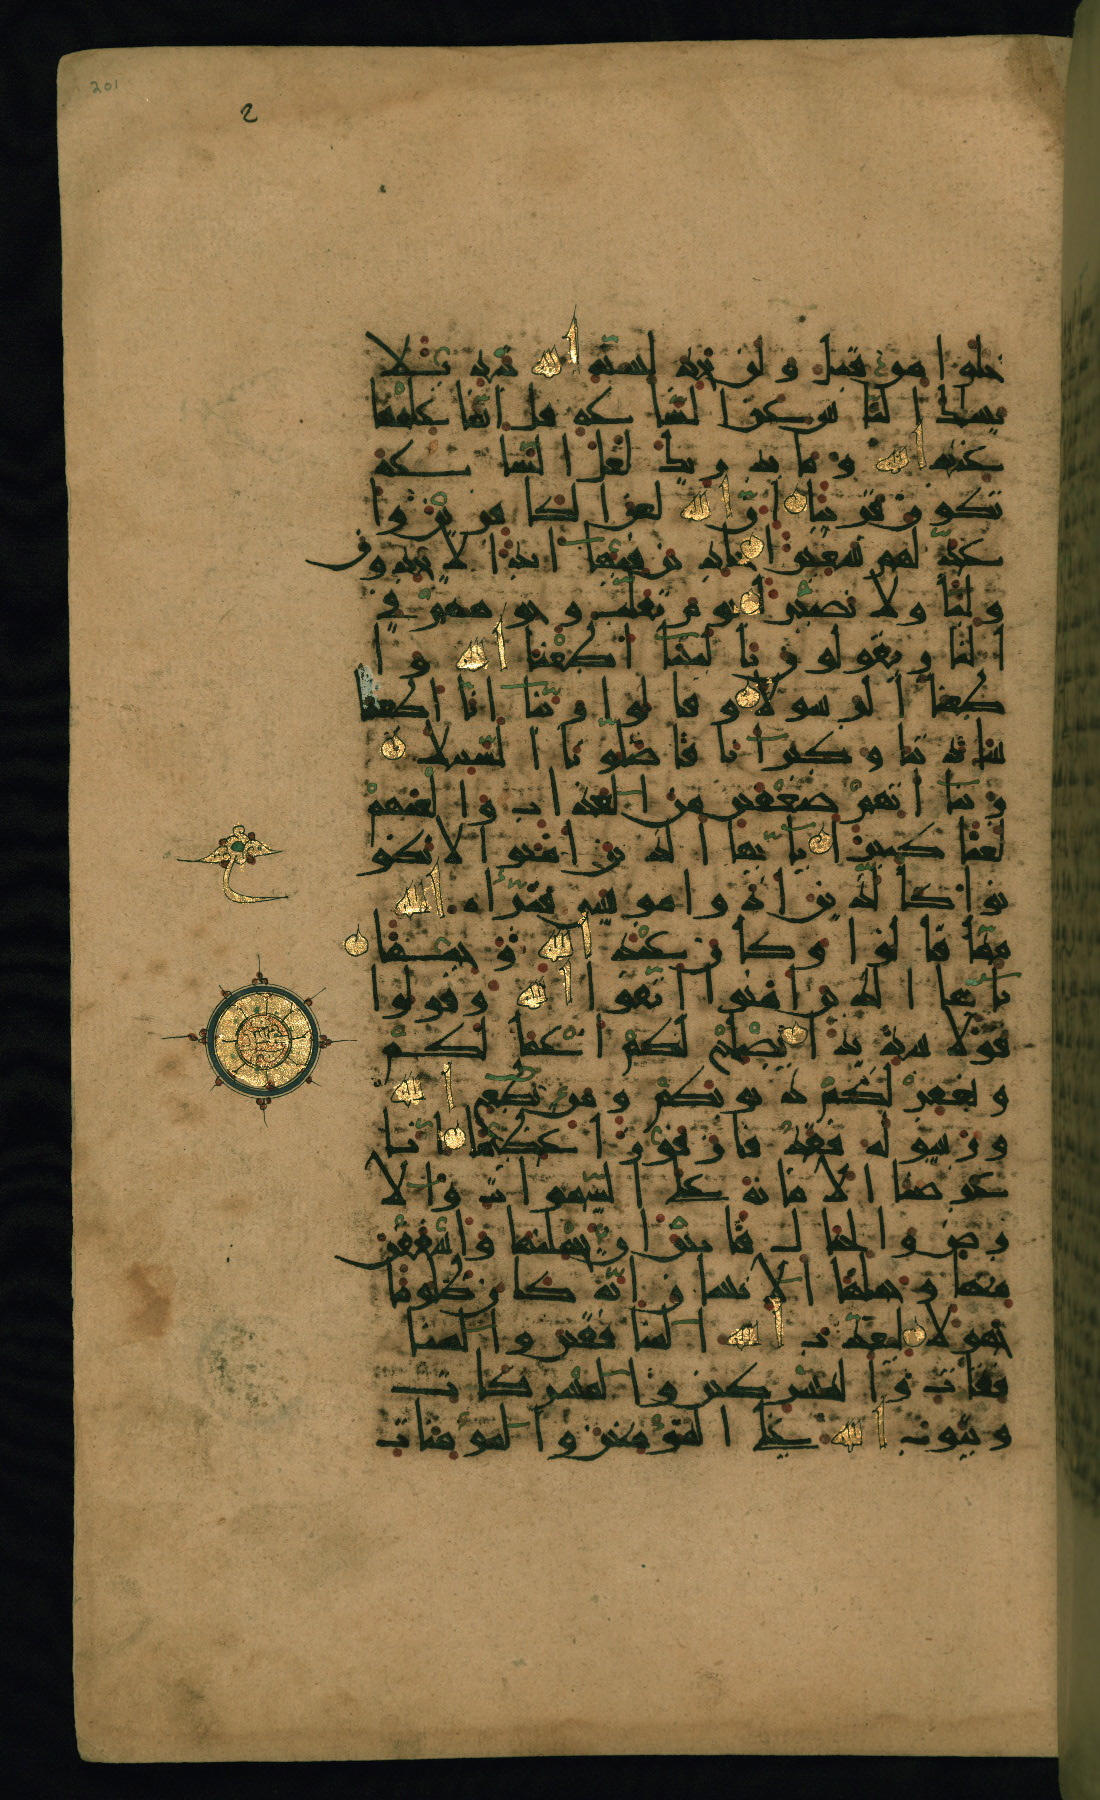 201
2
خلوا من قبل ولن تجد لسنة الله تبديلا
يسئلك الناس عن الساعة قل انما علمها
عند الله وما يدريك لعل الساعة
تكون قريبا ان الله لعن الكفرين وا
عد لهم سعيرا خلدين فيها ابدا لا يجدون
وليا ولا نصيرا يوم تقلب وجوههم في
النار يقولون يا ليتنا اطعنا الله وا
طعنا الرسولا وقالوا ربنا انا اطعنا
سادتنا وكبرانا فاضلونا السبيلا
ربنا اتهم ضعفين من العذاب والعنهم
لعنا كبيرا يا يها الذين امنوا لا تكو
نوا كالذين اذوا موسى فبراه الله
مما قالوا وكان عند الله وجيها
يا يها الذين امنوا اتقوا الله وقولوا
قولا سديدا يصلح لكم اعملكم
ويغفر لكم ذنوبكم ومن يطع الله
ورسوله فقد فاز فوزا عظيما انا
عرضنا الامانة على السموات والا
رض والجبال فابين ان يحملنها واشفقن
منها وحملها الانسان انه كان ظلوما
جهولا ليعذب الله المنافقين والمنا
فقات والمشركين والمشركات
ويتوب الله على المؤمنين والمؤمنات